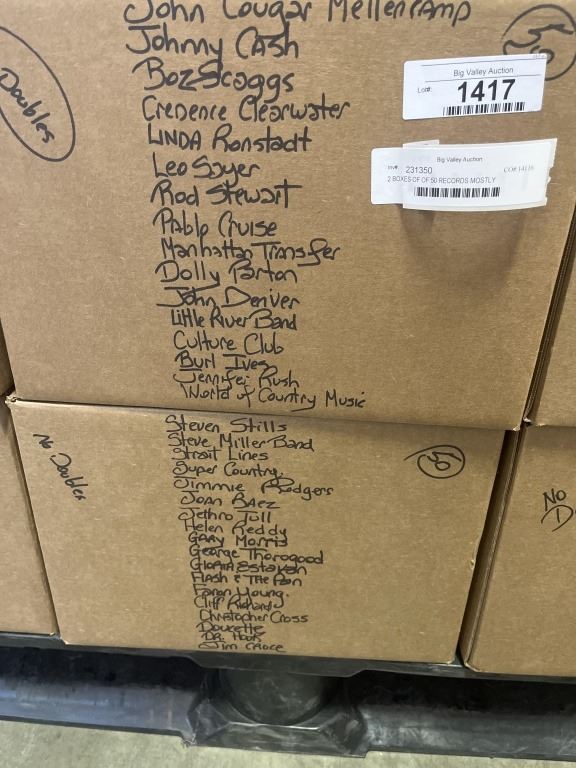 John Cougar Mellencamp
Johnny Cash
Boz Scaggs
Credence Clearwater
LINDA Ronstadt
Leo Sayer
Rod Stewart
Pablo Cruise
Manhattan Transfer
Dolly Parton
John Denver
Little River Band
Culture Club
Burl Ives
Jennifer Rush
World of Country Music
Doubles
50
Big Valley Auction
Lot#: 1417
Big Valley Auction
Inv#: 231350 CO# 14116
2 BOXES OF OF 50 RECORDS MOSTLY
Steven Stills
Steve Miller Band
Strait Lines
Super Country.
Jimmie Rodgers
JOAN BAEZ
Jethro Tull
Helen Reddy
GARY Morris
George Thorogood
GLORIA Estavan
FLASH & THE Pan
Faron Young.
Cliff Richard
Christopher Cross
Doucette
DR. HOOK
Jim CROCE
No Doubles
NO